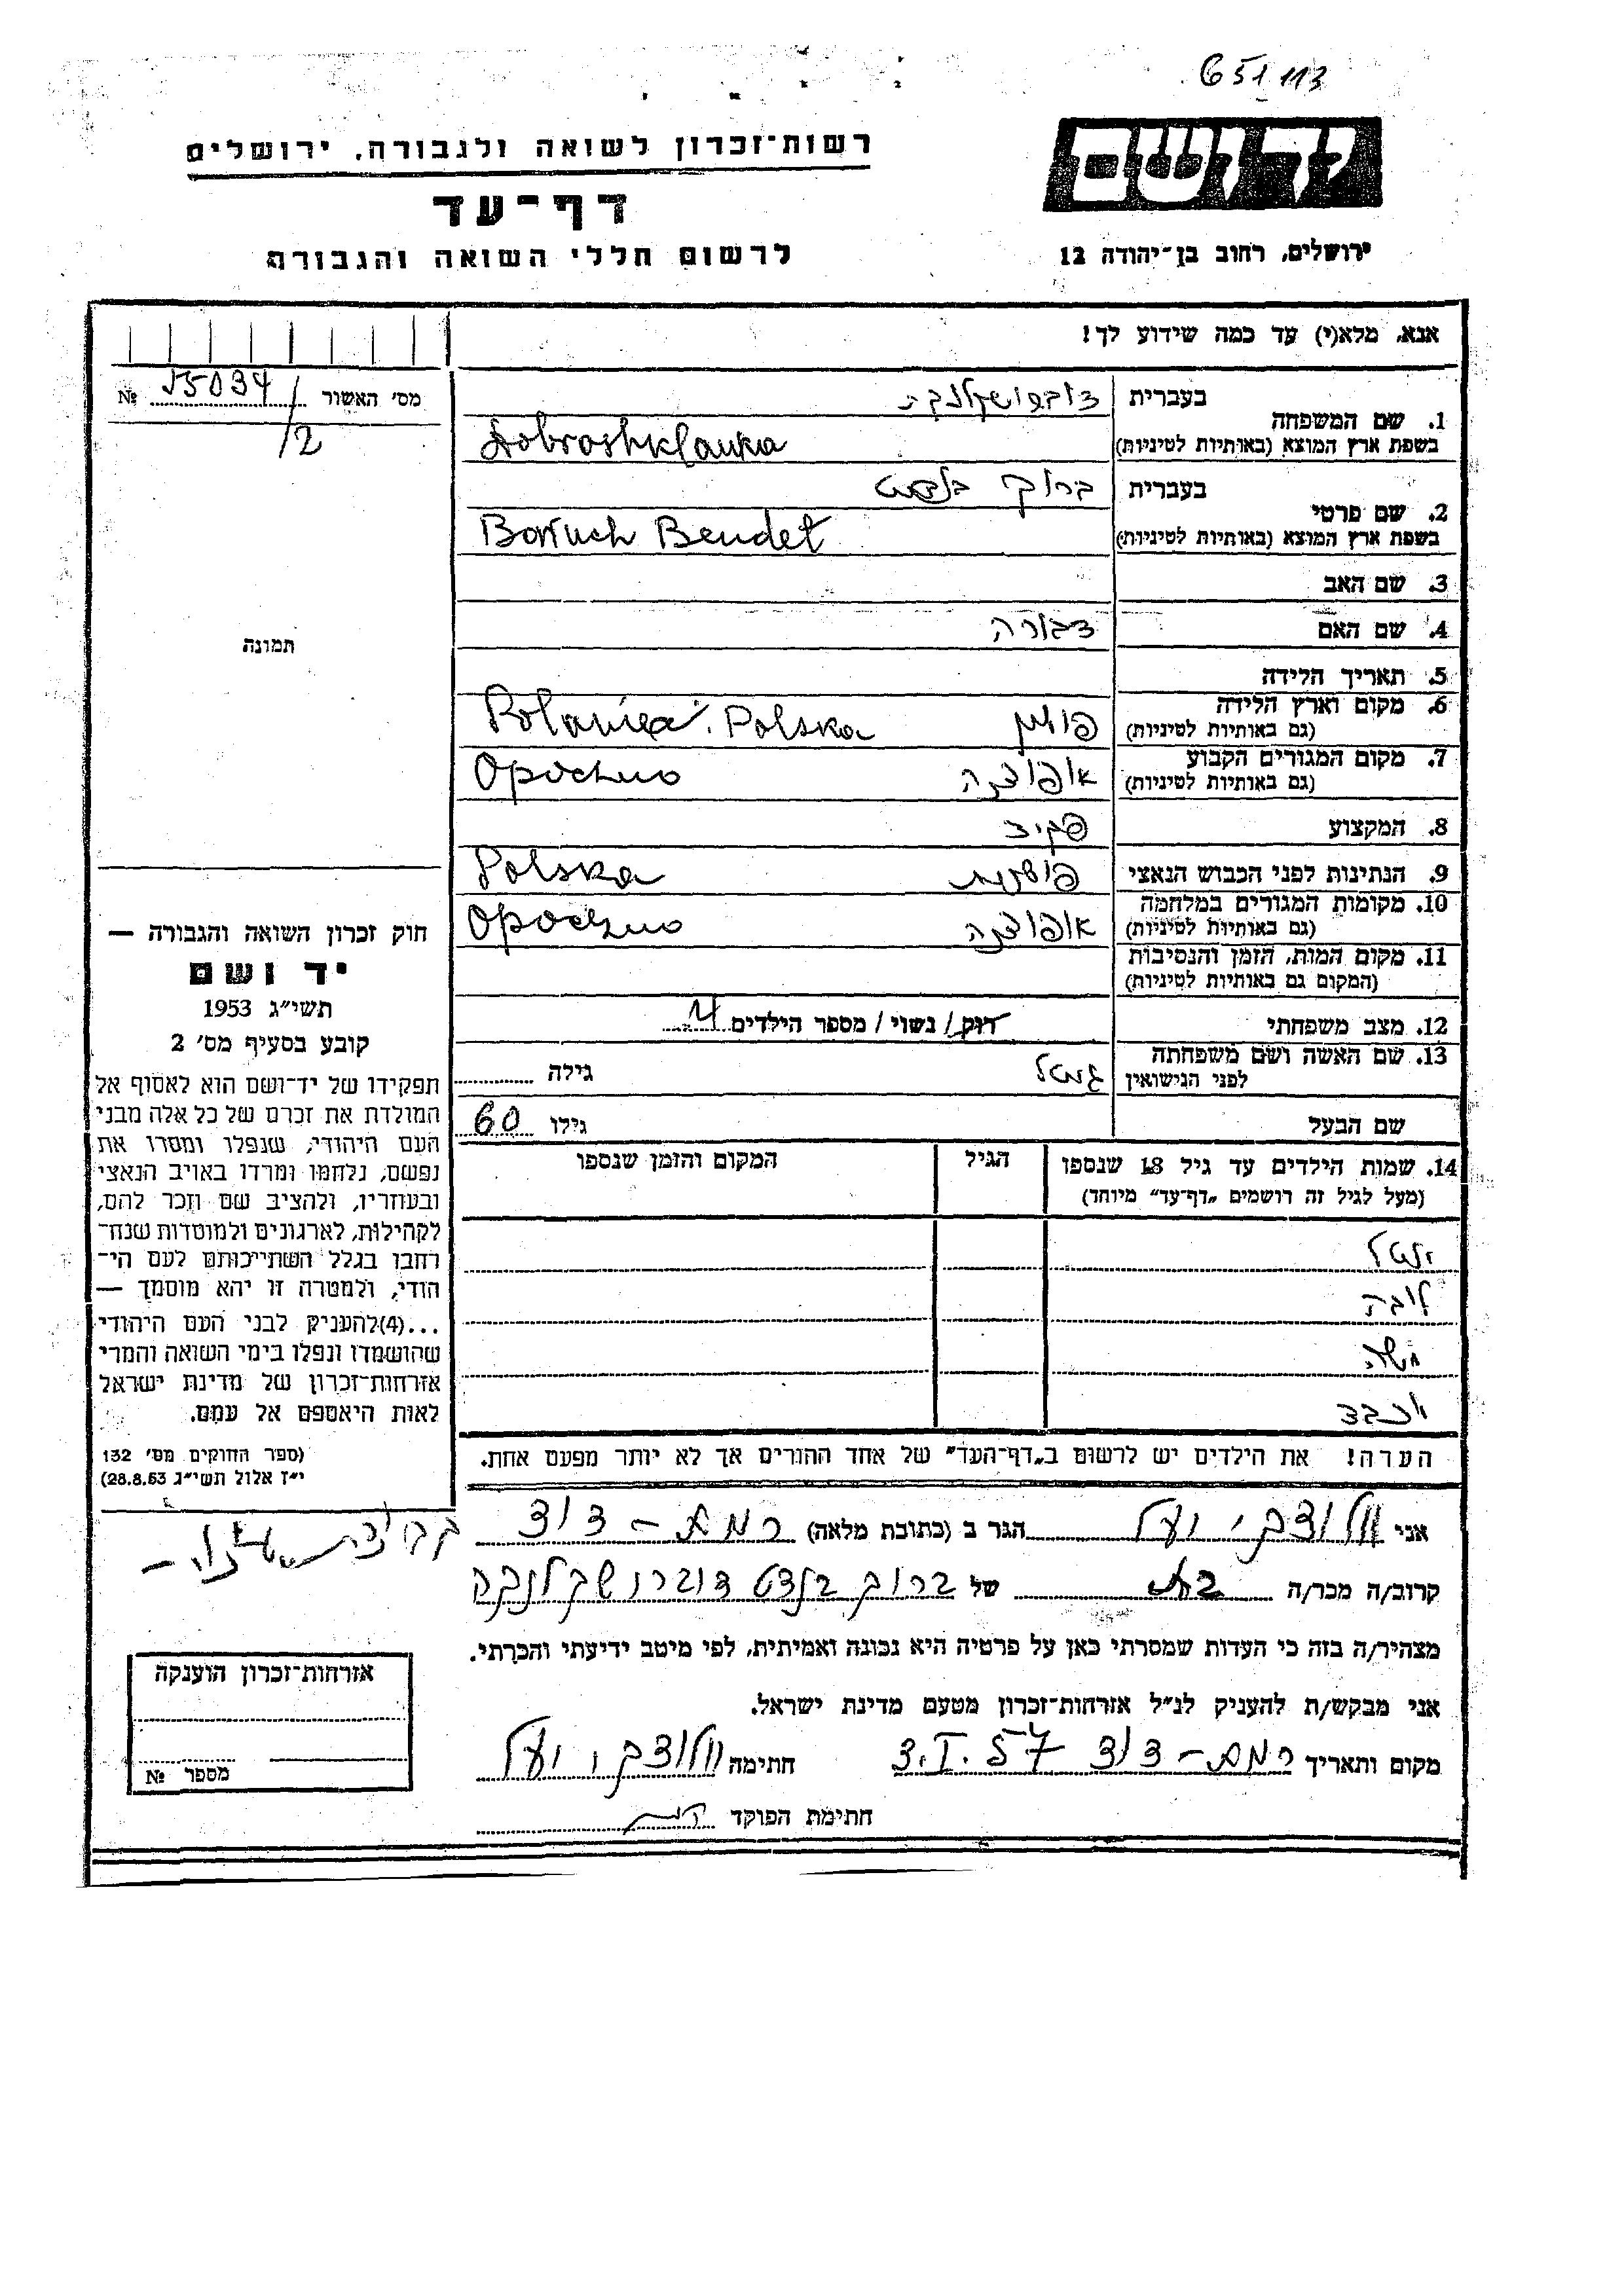 651113
יד ושם
רשות־זכרון לשואה ולגבורה, ירושלים
דף־עד
לרשום חללי השואה והגבורה
ירושלים, רחוב בן־יהודה 12
אנא, מלא(י) עד כמה שידוע לך!
מס' האשור № 15034/2
תמונה
1. שם המשפחה
בעברית
בשפת ארץ המוצא (באותיות לטיניות) Dobroshklanka
2. שם פרטי
בעברית ברוך בנדט
בשפת ארץ המוצא (באותיות לטיניות) Boruch Bendet
3. שם האב
4. שם האם דבורה
5. תאריך הלידה
6. מקום וארץ הלידה פולין Polska
(גם באותיות לטיניות)
7. מקום המגורים הקבוע אופוצנה Opoczno
(גם באותיות לטיניות)
8. המקצוע פקיד
9. הנתינות לפני הכבוש הנאצי פולנית Polska
10. מקומות המגורים במלחמה אופוצנה Opoczno
(גם באותיות לטיניות)
11. מקום המות, הזמן והנסיבות
(המקום גם באותיות לטיניות)
12. מצב משפחתי רווק/ נשוי/ מספר הילדים 4
13. שם האשה ושם משפחתה
לפני הנישואין גיטל גילה
שם הבעל גילו 60
14. שמות הילדים עד גיל 18 שנספו הגיל המקום והזמן שנספו
(מעל לגיל זה רושמים „דף־עד" מיוחד)
יוטל
ליבה
משה
יוכבד
הערה! את הילדים יש לרשום ב„דף־העד" של אחד ההורים אך לא יותר מפעם אחת.
חוק זכרון השואה והגבורה —
יד ושם
תשי"ג 1953
קובע בסעיף מס' 2
תפקידו של יד־ושם הוא לאסוף אל
המולדת את זכרם של כל אלה מבני
העם היהודי, שנפלו ומסרו את
נפשם, נלחמו ומרדו באויב הנאצי
ובעוזריו, ולהציב שם וזכר להם,
לקהילות, לארגונים ולמוסדות שנח־
רחבו בגלל השתייכותם לעם הי־
הודי, ולמטרה זו יהא מוסמך —
...(4)להעניק לבני העם היהודי
שהושמדו ונפלו בימי השואה והמרי
אזרחות־זכרון של מדינת ישראל
לאות היאספם אל עמם.
(ספר החוקים מס' 132
י"ז אלול תשי"ג 28.8.53)
אני יעל הגר ב (כתובת מלאה) רמת־דוד
קרוב/ה מכר/ה בת של ברוך בנדט דוברושקלנקה
מצהיר/ה בזה כי העדות שמסרתי כאן על פרטיה היא נכונה ואמיתית, לפי מיטב ידיעתי והכרתי.
אני מבקש/ת להעניק לנ"ל אזרחות־זכרון מטעם מדינת ישראל.
מקום ותאריך רמת־דוד חתימה יעל
חתימת הפוקד
אזרחות־זכרון הוענקה
מספר №